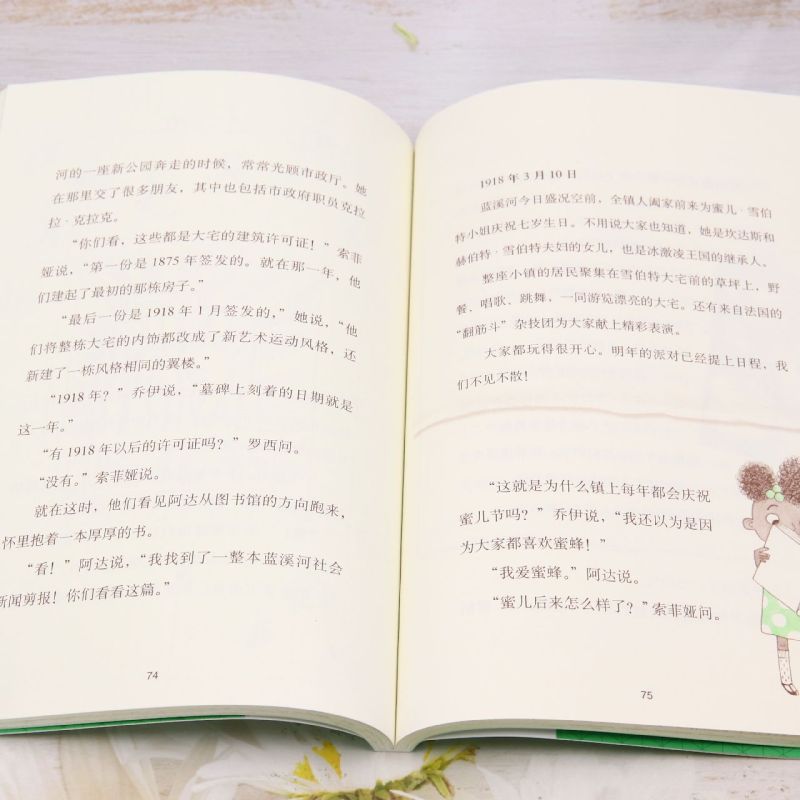 河的一座新公园奔走的时候，常常光顾市政厅。她
在那里交了很多朋友，其中也包括市政府职员克拉
拉·克拉克。
“你们看，这些都是大宅的建筑许可证！”索菲
娅说，“第一份是 1875 年签发的。就在那一年，他
们建起了最初的那栋房子。”
“最后一份是 1918 年 1 月签发的，”她说，“他
们将整栋大宅的内饰都改成了新艺术运动风格，还
新建了一栋风格相同的翼楼。”
“1918 年？”乔伊说，“墓碑上刻着的日期就是
这一年。”
“有 1918 年以后的许可证吗？”罗西问。
“没有。”索菲娅说。
就在这时，他们看见阿达从图书馆的方向跑来，
怀里抱着一本厚厚的书。
“看！”阿达说，“我找到了一整本蓝溪河社会
新闻剪报！你们看看这篇。”
74
1918 年 3 月 10 日
蓝溪河今日盛况空前，全镇人阖家前来为蜜儿·雪伯
特小姐庆祝七岁生日。不用说大家也知道，她是坎达斯和
赫伯特·雪伯特夫妇的女儿，也是冰激凌王国的继承人。
整座小镇的居民聚集在雪伯特大宅前的草坪上，野
餐、唱歌、跳舞，一同游览漂亮的大宅。还有来自法国的
“翻筋斗”杂技团为大家献上精彩表演。
大家都玩得很开心。明年的派对已经提上日程，我
们不见不散！
“这就是为什么镇上每年都会庆祝
蜜儿节吗？”乔伊说，“我还以为是因
为大家都喜欢蜜蜂！”
“我爱蜜蜂。”阿达说。
“蜜儿后来怎么样了？”索菲娅问。
75